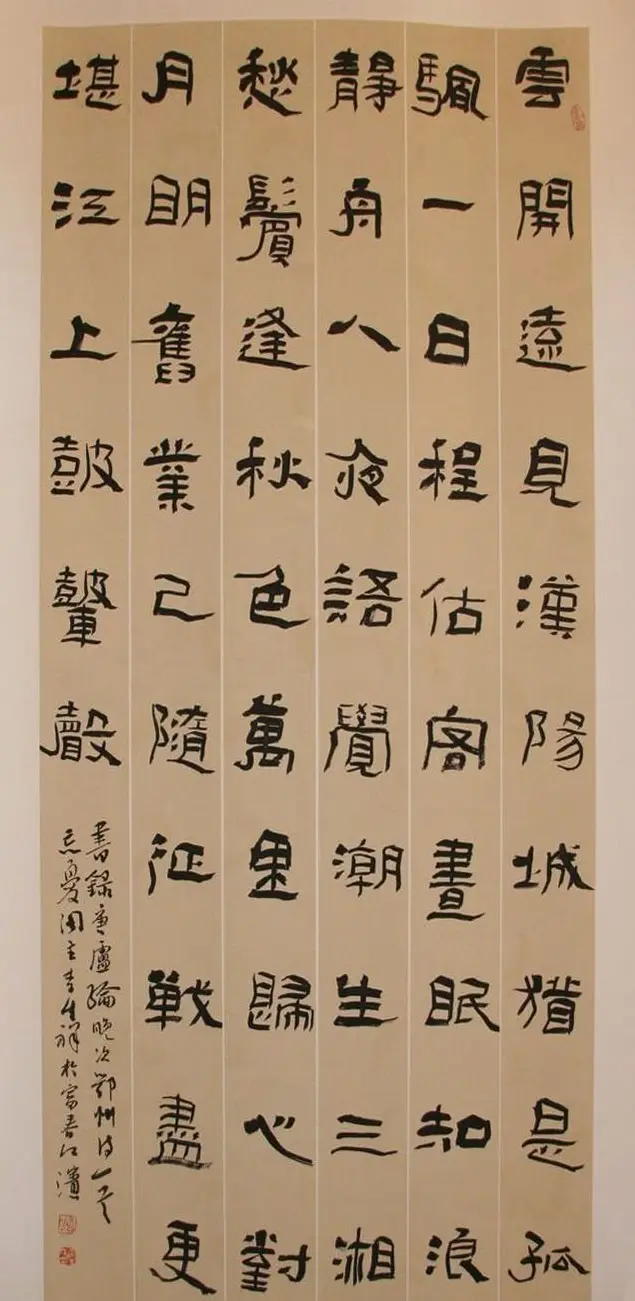 雲開遠見漢陽城猶是孤
颿一日程估客晝眠知浪
靜舟人夜語覺潮生三湘
愁鬢逢秋色萬里歸心對
月眀舊業已隨征戰盡更
堪江上皷鼙聲
書錄唐盧綸晚次鄂州詩一首
忘憂主生祥於富春江濱